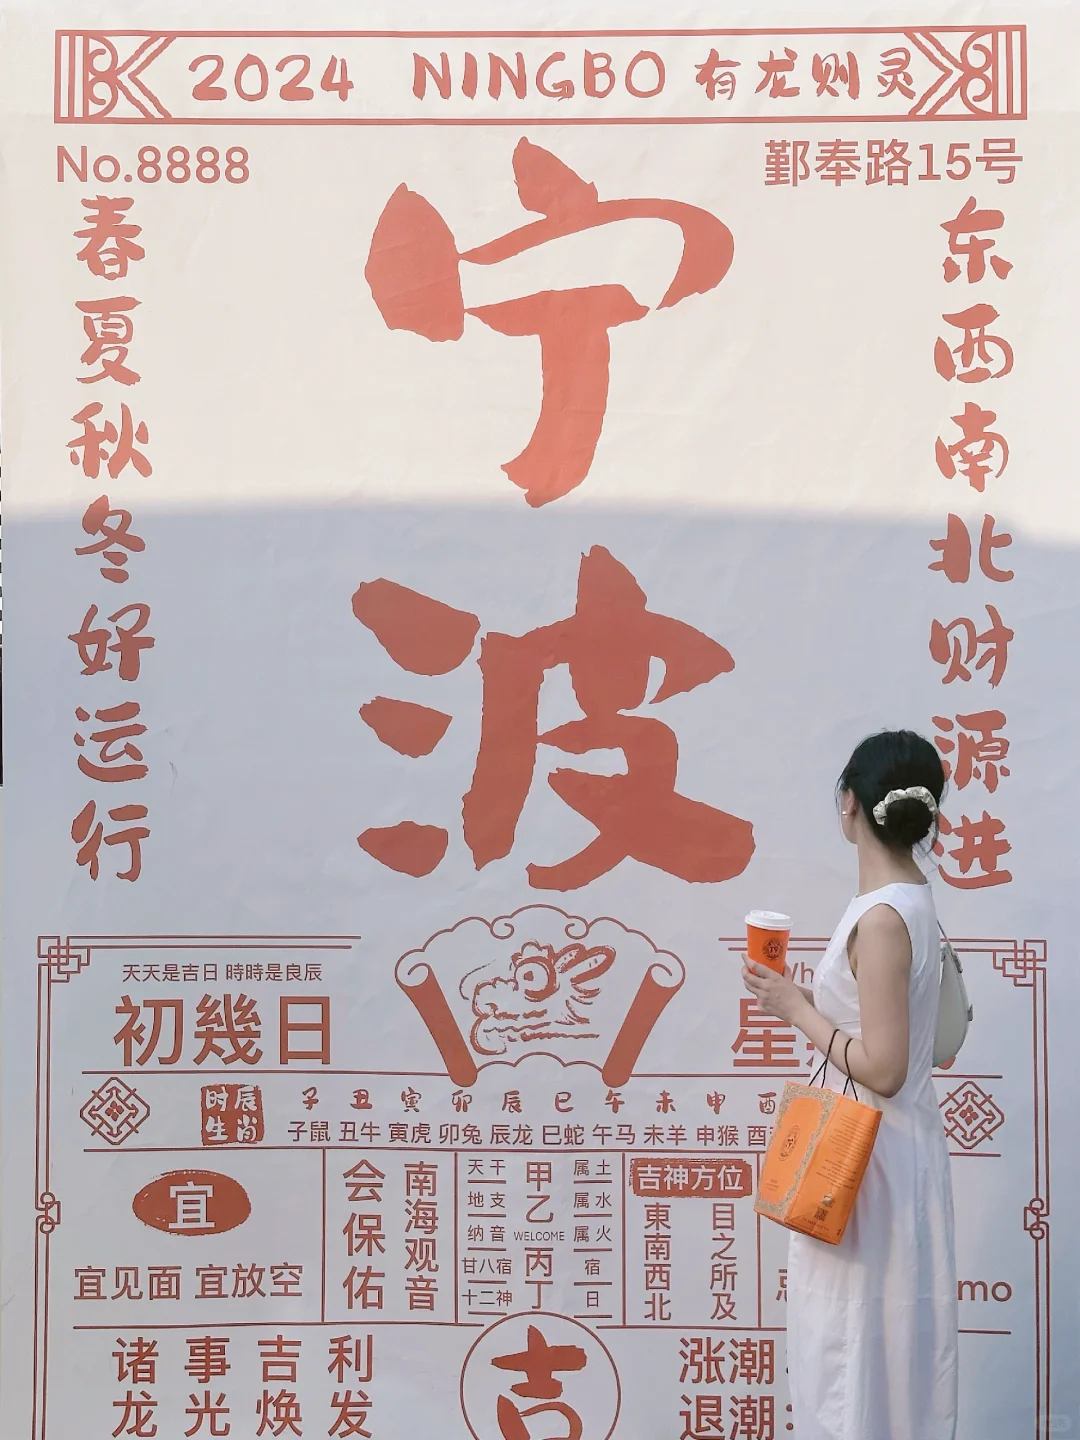 2024 NINGBO 有龙则灵
No.8888
鄞奉路15号
春夏秋冬好运行
宁波
东西南北财源进
天天是吉日 時時是良辰
初幾日
Wh
星
时辰
生肖
子 丑 寅 卯 辰 巳 午 未 申 酉
子鼠 丑牛 寅虎 卯兔 辰龙 巳蛇 午马 未羊 申猴 酉
宜
宜见面 宜放空
会保佑
南海观音
天干
地支
纳音
廿八宿
十二神
甲
乙
WELCOME
丙
丁
属土
属水
属火
宿
日
吉神方位
東南西北
目之所及
mo
诸事吉利
龙光焕发
吉
涨潮：
退潮：